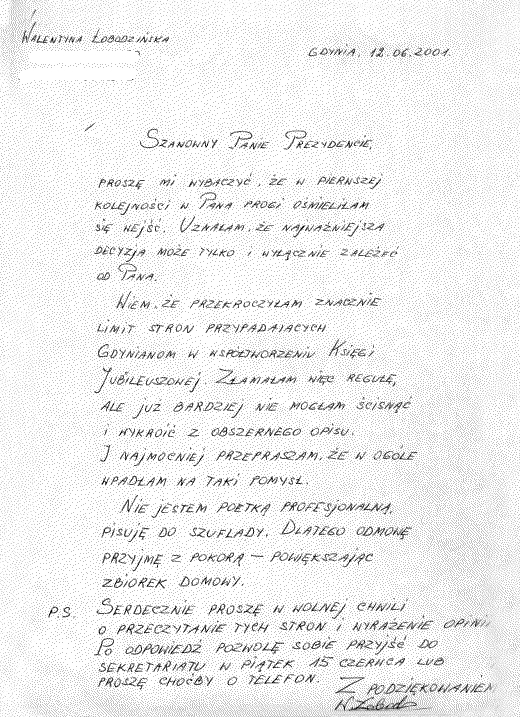 Walentyna Łobodzińska
Gdynia, 12.06.2001.
Szanowny Panie Prezydencie,
proszę mi wybaczyć, że w pierwszej
kolejności w Pana progi ośmieliłam
się wejść. Uznałam, że najważniejsza
decyzja może tylko i wyłącznie zależeć
od Pana.
Wiem, że przekroczyłam znacznie
limit stron przypadających
Gdynianom w współtworzeniu Księgi
Jubileuszowej. Złamałam więc regułę,
ale już bardziej nie mogłam ścisnąć
i wykroić z obszernego opisu.
I najmocniej przepraszam, że w ogóle
wpadłam na taki pomysł.
Nie jestem poetką profesjonalną,
pisuję do szuflady. Dlatego odmowę
przyjmę z pokorą – powiększając
zbiorek domowy.
P.S. Serdecznie proszę w wolnej chwili
o przeczytanie tych stron i wyrażenie opinii
Po odpowiedź pozwolę sobie przyjść do
sekretariatu w piątek 15 czerwca lub
proszę choćby o telefon.
Z podziękowaniem